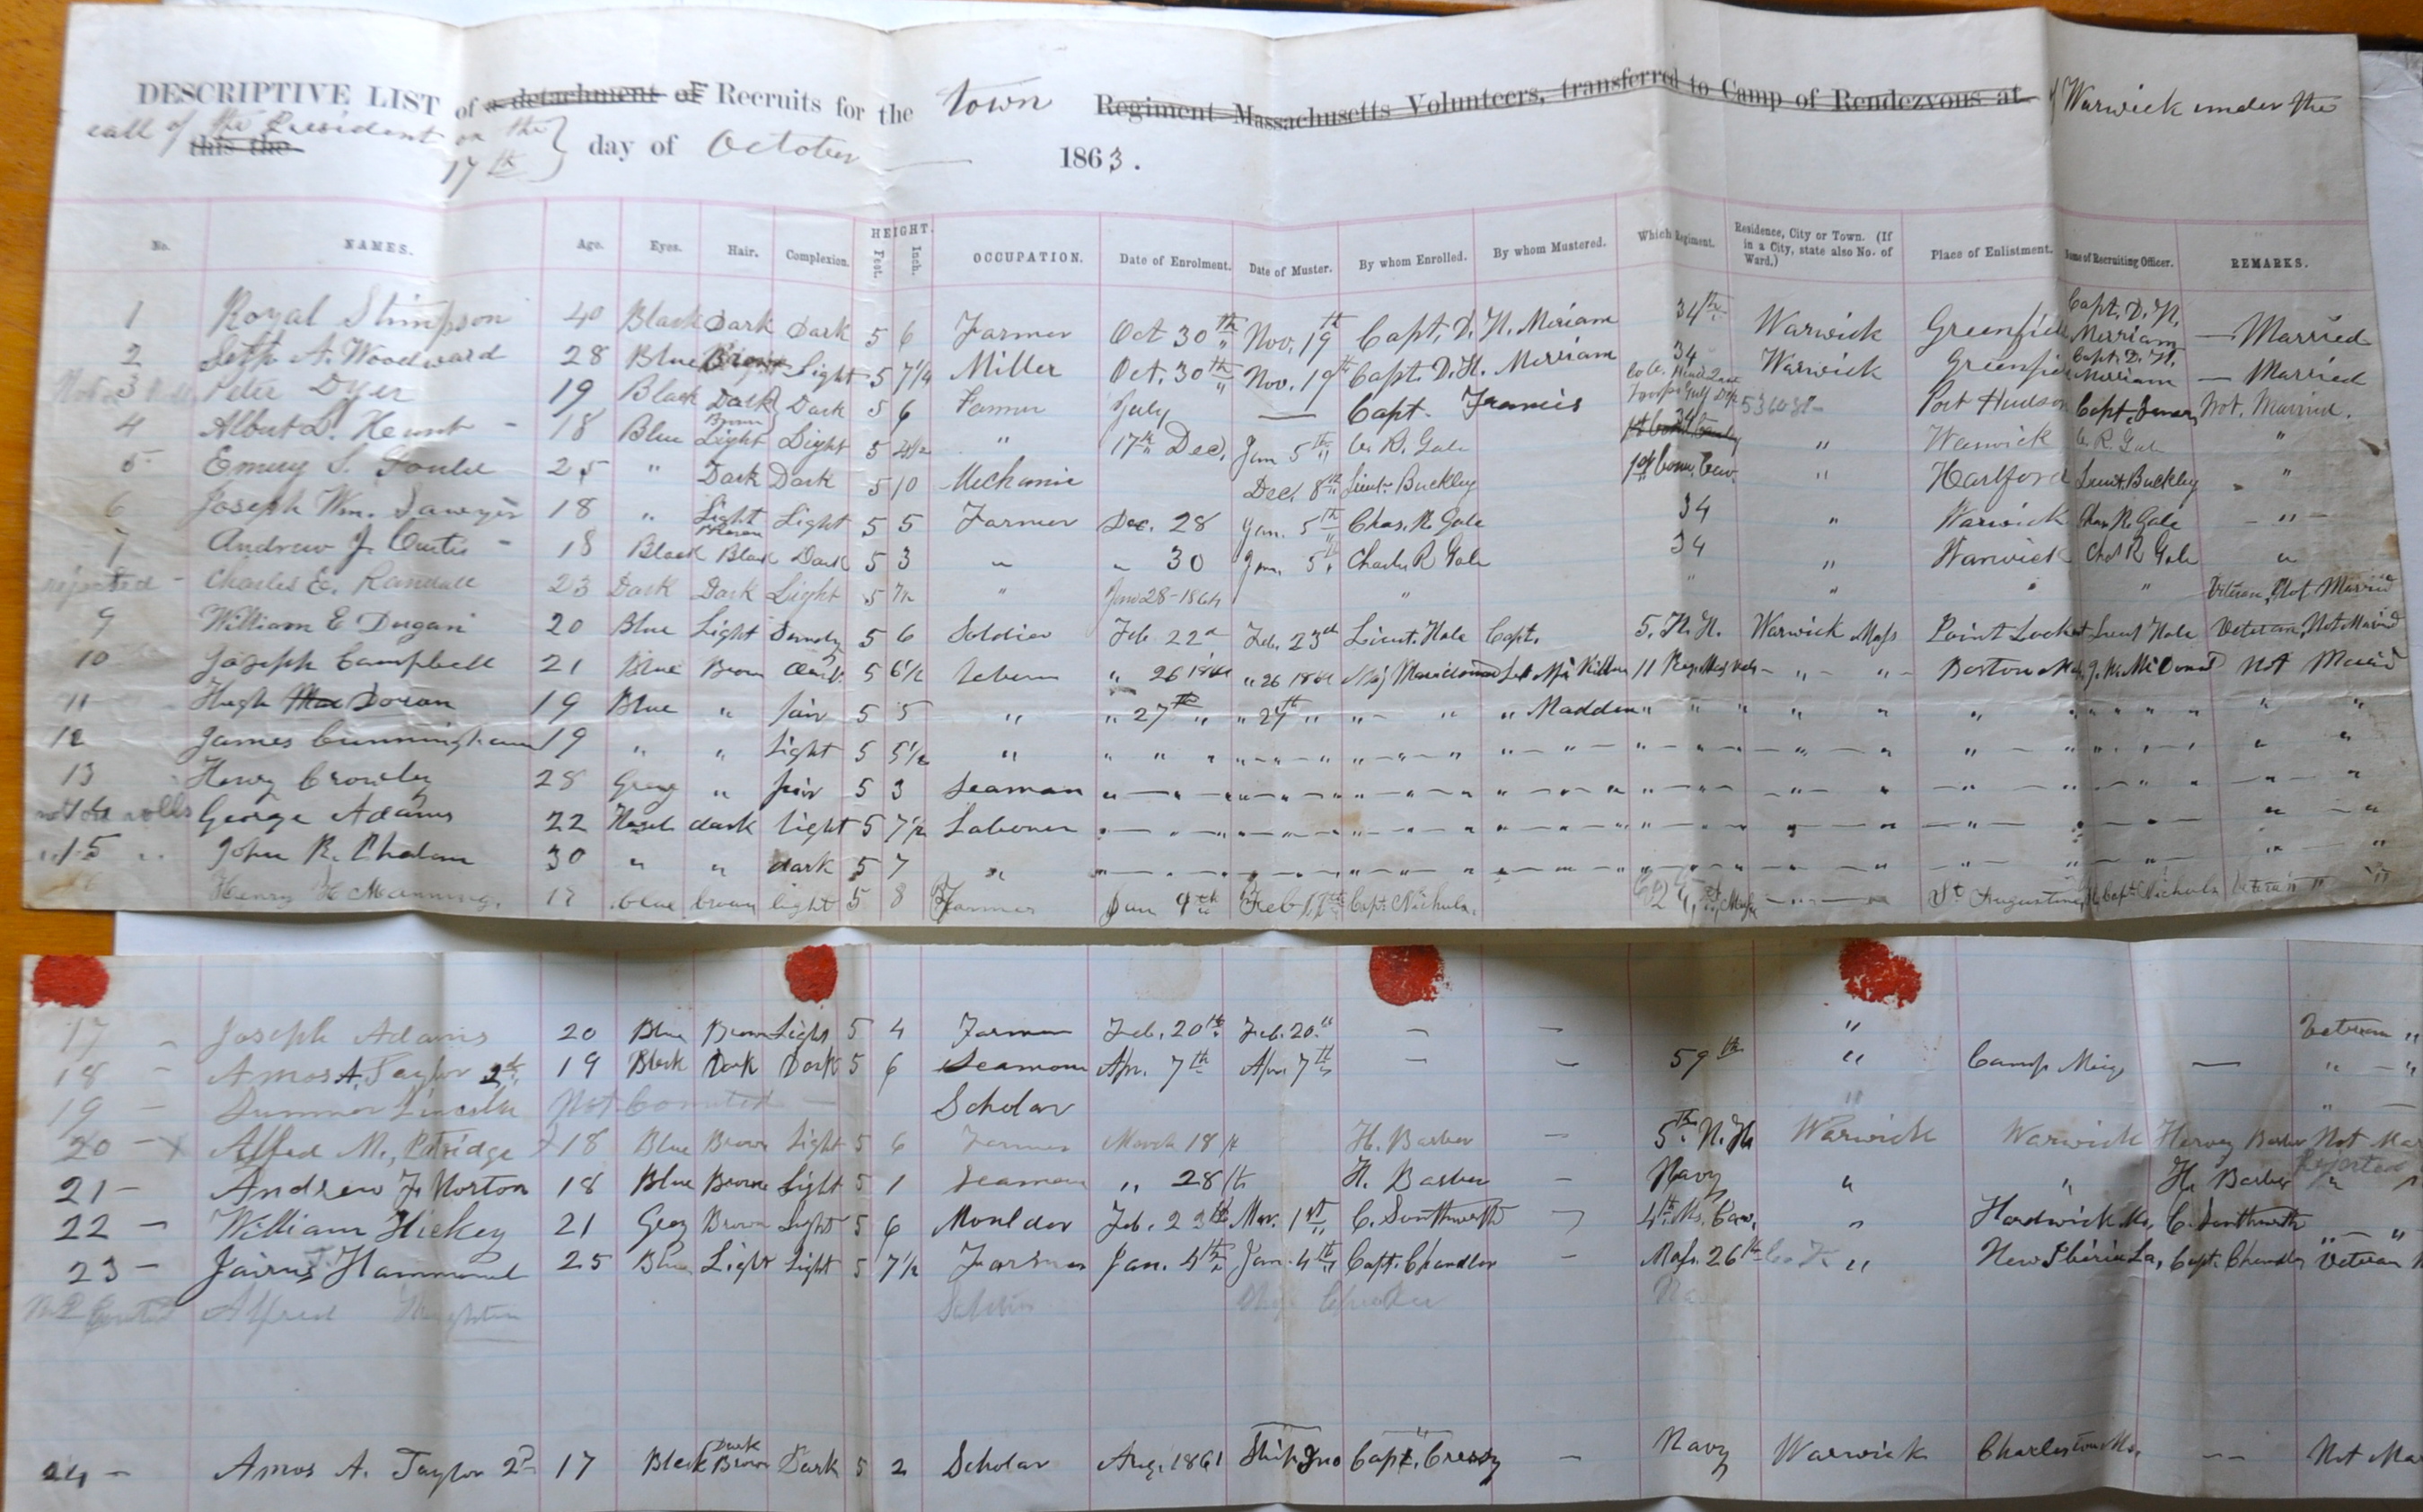 DESCRIPTIVE LIST of a detachment of Recruits for the town Regiment Massachusetts Volunteers, transferred to Camp of Rendezvous at of Warwick under the
call of the President on the
this the 17th } day of October 1863.
No. NAMES. Age. Eyes. Hair. Complexion. HEIGHT. Feet. Inch. OCCUPATION. Date of Enrolment. Date of Muster. By whom Enrolled. By whom Mustered. Which Regiment. Residence, City or Town. (If in a City, state also No. of Ward.) Place of Enlistment. Name of Recruiting Officer. REMARKS.
1 Royal Stimpson 40 Black Dark Dark 5 6 Farmer Oct 30th Nov. 19th Capt. D. H. Meriam 34th Warwick Greenfield Capt. D. H. Merriam — Married
2 Seth A. Woodward 28 Blue Light 5 7 1/4 Miller Oct. 30th Nov. 19th Capt. D. H. Merriam 34 Warwick Greenfie Capt. D. H. Merriam — Married
3 Peter Dyer 19 Black Dark Dark 5 6 Farmer July — Capt. Francis Port Hudson Capt. Not. Married.
4 Albert D. Hunt - 18 Blue Brown Light Light 5 4 1/2 " 17th Dec. Jan 5th C. R. Gale 34 1st Conn. Cavalry " Warwick C. R. Gale "
5 Emery S. Gould 25 " Dark Dark 5 10 Mechanic Dec. 8th Lieut. Buckley 1st Conn. Cav. " Hartford Lieut. Buckley "
6 Joseph Wm. Sawyer 18 " Light Brown Light 5 5 Farmer Dec. 28 Jan. 5th Chas. R. Gale 34 " Warwick Chas R. Gale - " -
7 Andrew J. Curtis - 18 Black Black Dark 5 3 " " 30 Jan. 5. Charles R Gale 34 " Warwick Chas R Gale "
rejected - Charles E. Randall 23 Dark Dark Light 5 7 1/2 " Jan 28-1864 " " " " " Veteran, Not Married
9 William E Dugan 20 Blue Light Sandy 5 6 Soldier Feb 22d Feb. 23d Lieut. Hale Capt. 5. N. H. Warwick Mass Point Lookout Lieut Hale Veteran, Not Married
10 Joseph Campbell 21 Blue Brown 5 6 1/2 " 26 1864 " 26 1864 Maj 11 Reg. Mass Vols - " - " - Boston Mass J. McDonald Not Married
11 Hugh Mac Doran 19 Blue " fair 5 5 " " 27th " " 27th " " - " " Madden " " " " " " " " " " " "
12 James Cunningham 19 " " light 5 5 1/2 " " " " " " " " " " " " "
13 Henry Crowley 28 Grey " fair 5 3 Seaman " " " " " " " " " " "
not on rolls 14 George Adams 22 Hazel dark light 5 7 1/2 Laborer " " " " " " " " " "
15 John R. 30 " " dark 5 7 " " " " " " " " " " "
Henry H Manning. 17 blue brown light 5 8 Farmer Jan 9th Feb Capt. Nichols. St Augustine Capt. Nichols Veteran " "
17 - Joseph Adams 20 Blue Brown Light 5 4 Farmer Feb. 20th Feb. 20" — — " Veteran "
18 - Amos A. Taylor 2d 19 Black Dark Dark 5 6 Seaman Apr. 7th Apr 7th — — 59th " Camp Meigs — " - "
19 - Sumner Lincoln Not Counted — Scholar " "
20 - x Alfred M. Patridge x 18 Blue Brown Light 5 6 Farmer March 18 H. Barber — 5th N. H. Warwick Warwick Hervey Barber Not Mar
21 - Andrew J. Norton 18 Blue Brown Light 5 1 Seaman " 28 H. Barber — Navy " " H. Barber Rejected "
22 - William Hickey 21 Grey Brown Light 5 6 Moulder Feb. 23d Mar. 1st C. Southworth 4th Ms. Cav. " Hardwick Ms. C. Southworth " - "
23 - Jairus Hammond 25 Blue Light Light 5 7 1/2 Farmer Jan. 4th Jan. 4th Capt. Chandler - Mass. 26th Co K " New Iberia La, Capt. Chandler Veteran
Not Counted Alfred Ship Na
24 - Amos A. Taylor 2d 17 Black Dark Brown Dark 5 2 Scholar Aug. 1861 Ship Ino Capt. Cressy — Navy Warwick Charlestown Ms. -- Not Ma